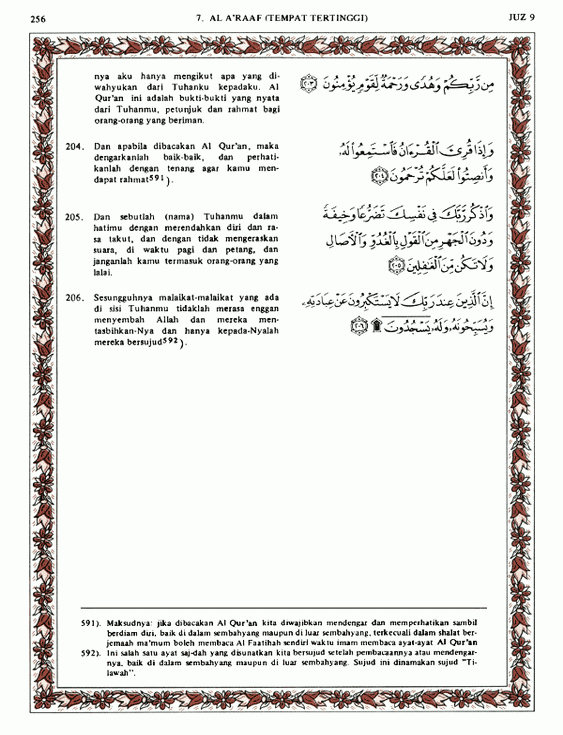 256 7. AL A'RAAF (TEMPAT TERTINGGI) JUZ 9
nya aku hanya mengikut apa yang di-
wahyukan dari Tuhanku kepadaku. Al
Qur'an ini adalah bukti-bukti yang nyata
dari Tuhanmu, petunjuk dan rahmat bagi
orang-orang yang beriman.
مِن رَّبِّكُمْ وَهُدًى وَرَحْمَةٌ لِّقَوْمٍ يُؤْمِنُونَ ﴿٢٠٣﴾
204. Dan apabila dibacakan Al Qur'an, maka
dengarkanlah baik-baik, dan perhati-
kanlah dengan tenang agar kamu men-
dapat rahmat591).
وَإِذَا قُرِئَ ٱلْقُرْءَانُ فَٱسْتَمِعُوا۟ لَهُۥ
وَأَنصِتُوا۟ لَعَلَّكُمْ تُرْحَمُونَ ﴿٢٠٤﴾
205. Dan sebutlah (nama) Tuhanmu dalam
hatimu dengan merendahkan diri dan ra-
sa takut, dan dengan tidak mengeraskan
suara, di waktu pagi dan petang, dan
janganlah kamu termasuk orang-orang yang
lalai.
وَٱذْكُر رَّبَّكَ فِى نَفْسِكَ تَضَرُّعًا وَخِيفَةً
وَدُونَ ٱلْجَهْرِ مِنَ ٱلْقَوْلِ بِٱلْغُدُوِّ وَٱلْءَاصَالِ
وَلَا تَكُن مِّنَ ٱلْغَٰفِلِينَ ﴿٢٠٥﴾
206. Sesungguhnya malaikat-malaikat yang ada
di sisi Tuhanmu tidaklah merasa enggan
menyembah Allah dan mereka men-
tasbihkan-Nya dan hanya kepada-Nyalah
mereka bersujud592).
إِنَّ ٱلَّذِينَ عِندَ رَبِّكَ لَا يَسْتَكْبِرُونَ عَنْ عِبَادَتِهِۦ
وَيُسَبِّحُونَهُۥ وَلَهُۥ يَسْجُدُونَ ۩ ﴿٢٠٦﴾
591). Maksudnya: jika dibacakan Al Qur'an kita diwajibkan mendengar dan memperhatikan sambil
berdiam diri, baik di dalam sembahyang maupun di luar sembahyang, terkecuali dalam shalat ber-
jemaah ma'mum boleh membaca Al Faatihah sendiri waktu imam membaca ayat-ayat Al Qur'an
592). Ini salah satu ayat saj-dah yang disunatkan kita bersujud setelah pembacaannya atau mendengar-
nya, baik di dalam sembahyang maupun di luar sembahyang. Sujud ini dinamakan sujud "Ti-
lawah".